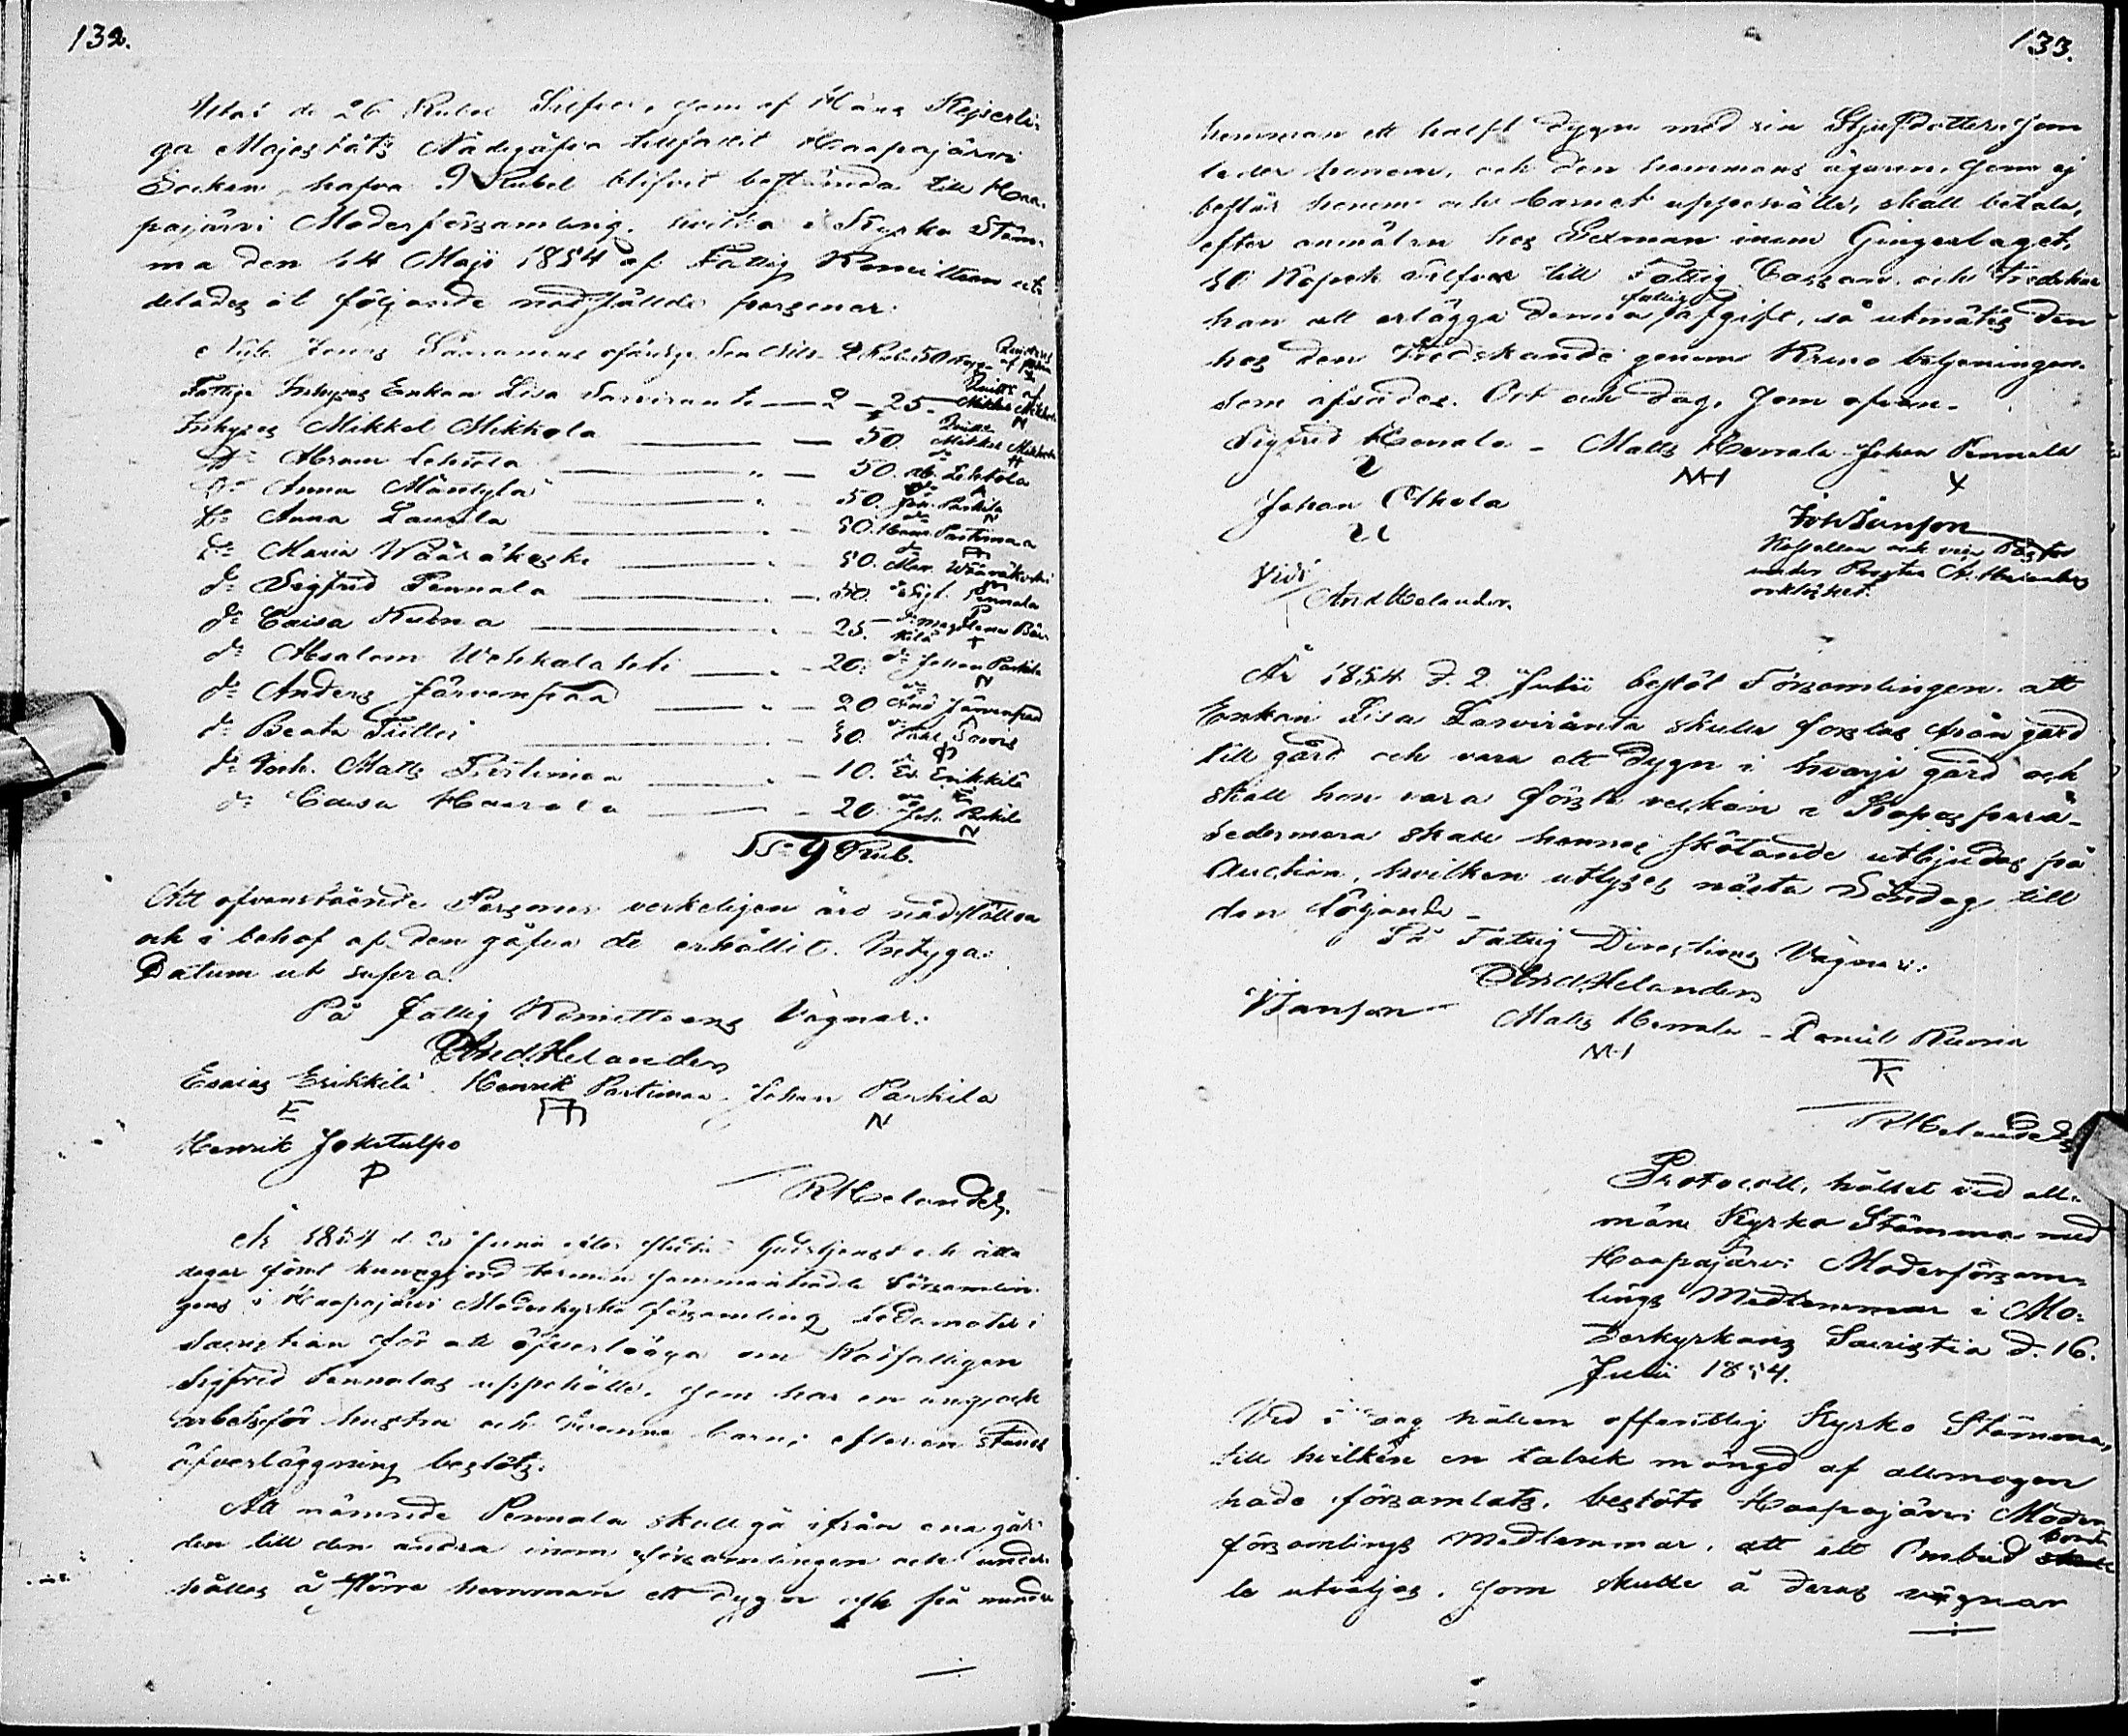 132.
Utaf de 26 Rubel Silfver, som af Hans Kejserli-
ga Majestäts Nådegåfva tillfallit Haapajärvi
Socken, hafva 9 Rubel blifvit bestämda till Haa-
pajärvi Moderförsamling, hvilka i Kyrko Stäm-
ma den 14 Maji 1854 af Fattig Komitteen ut-
delades åt följande nödställde personer:
Jonas 2 Rub. 50 Kop.
Fattige Inhyses Enkan Lisa Sarviranta — 2 — 25. Mikkel Mikkola
Inhyses Mikkel Mikkola — 50. Mikkel Mikkola
do Abram Lehtola — 50. ab. Lehtola
do Anna Mäntylä — 50. Joh. Parkila
do Anna Laurila — 50. Henr. Partimaa
do Maria Wääräkoski — 50. Mar. Wääräkoski
do Sigfrid Pennala — 50. Sigf. Pennala
do Caisa Kuona — 25. Magdlena
do Absalom Wehkalahti — 20. do Johan Parkila
do Anders Järvenpää — 20 And Järvenpää
do Beata Tulli — 50.
do Joh. Matts Partimaa — 10. Es. Erikkilä
do Caisa Haarala — 20 Joh. Parkila
Sa 9 Rub.
Att ofvanstående Personer verkeligen äro nödställda
och i behof af den gåfva de erhållit. Intyga:
Datum ut supra.
På Fattig Komitteens Vägnar:
And. Helander
Esaias Erikkilä. Henrik Partimaa. Johan Parkila
E N
Henrik Jokitulpo
P
RHelander.
År 1854 d. 25 Junii efter slutad Gudstjenst och åtta
dagar förut kungjord termin sammanträdde Församlin-
gens i Haapajärvi Moderkyrko församling ledamöter i
Sacristian för att öfverlägga om Rotfattigen
Sigfrid Pennalas uppehälle, som har en ung och
arbetsför hustru och tvenne barn; efter en stunds
öfverläggning beslöts:
Att nämnde Pennala skall gå ifrån ena går-
den till den andra inom församlingen och under-
hållas å större hemman ett dygn och på mindre
133.
hemman ett halft dygn med sin Styfdotter, som
leder honom, och den hemmans ägaren, som ej
består honom och barnet uppehälle, skall betala,
efter anmälan hos Sexman inom Gingerlaget,
50 Kopek silfver till Fattig Cassan, och Tredskar
han att erlägga denna fattig afgift, så utmätes den
hos den Tredskande genom Krono betjeningen.
Som afsades. Ort och dag, som ofvan.
Sigfrid Hemala - Matts Hemala Johan Pennala
MH X
Johan Olkola
JohJanson
Kapellan och vice Pastor
under Prosten
Vidi
And Helander.
År 1854 d. 2 Julii beslöt Församlingen att
Enkan Lisa Sarviranta skulle forslas från gård
till gård och vara ett dygn i hvarje gård och
skall hon vara första veckan i
sedermera skall hennes skötande utbjudas på
Auction, hvilken utlyses nästa Söndag till
den följande -
På Fattig Directions Vägnar:
And. Helander
JJanson Matts Hemala - Daniel Kuona
MH K
RHelander
Protocoll, hållet vid all-
män Kyrko Stämma med
Haapajärvi Moderförsam-
lings Medlemmar i Mo-
derkyrkans Sacristia d. 16.
Julii 1854.
Vid i dag hållen offentelig Kyrko Stämma,
till hvilken en talrik mängd af allmogen
hade församlats, beslöto Haapajärvi Moder
församlings Medlemmar, att ett Ombud borde
utväljas, som skulle å deras vägnar